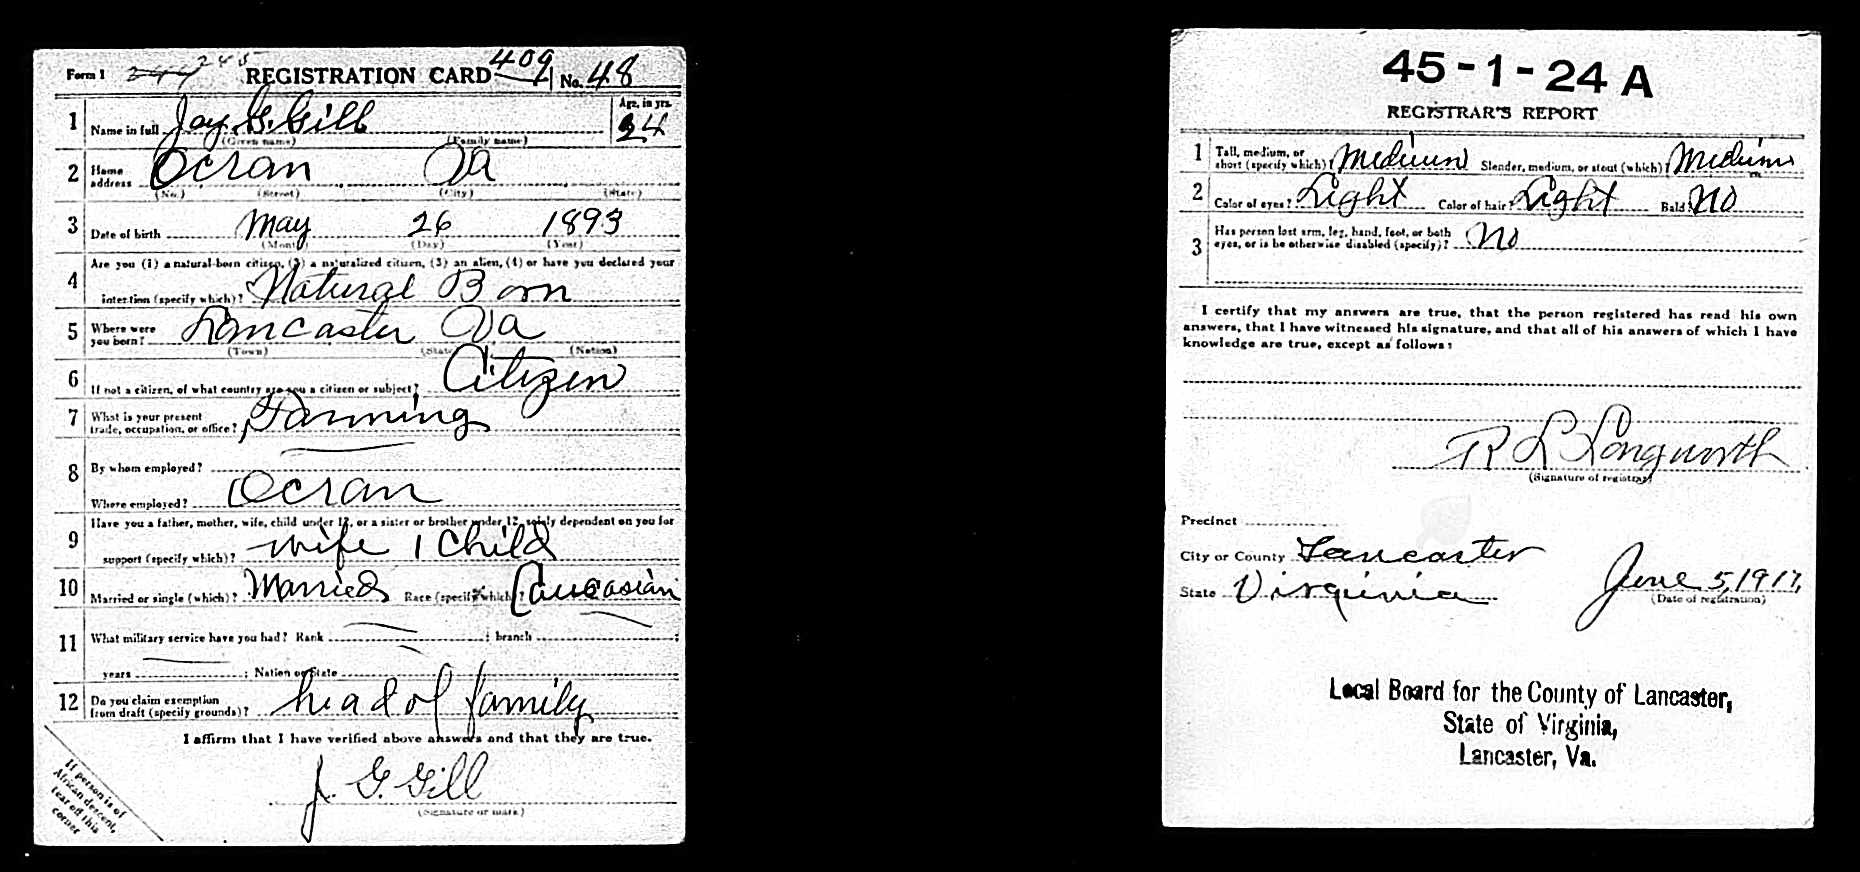 Form 1 244 245 REGISTRATION CARD 409 No. 48
1 Name in full Jay G. Gill Age, in yrs. 24
(Given name) (Family name)
2 Home address Ocran Va
(No.) (Street) (City) (State)
3 Date of birth May 26 1893
(Month) (Day) (Year)
4 Are you (1) a natural-born citizen, (2) a naturalized citizen, (3) an alien, (4) or have you declared your
intention (specify which)? Natural Born
5 Where were you born? Lancaster Va
(Town) (State) (Nation)
6 If not a citizen, of what country are you a citizen or subject? Citizen
7 What is your present trade, occupation, or office? Farming
8 By whom employed?
Where employed? Ocran
9 Have you a father, mother, wife, child under 12, or a sister or brother under 12, solely dependent on you for
support (specify which)? wife 1 Child
10 Married or single (which)? Married Race (specify which)? Caucasian
11 What military service have you had? Rank ; branch ;
years ; Nation or State
12 Do you claim exemption from draft (specify grounds)? head of family
I affirm that I have verified above answers and that they are true.
J. G. Gill
(Signature or mark)
If person is of
African descent,
tear off this
corner
45-1-24 A
REGISTRAR'S REPORT
1 Tall, medium, or short (specify which)? Medium Slender, medium, or stout (which)? Medium
2 Color of eyes? Light Color of hair? Light Bald? No
3 Has person lost arm, leg, hand, foot, or both
eyes, or is he otherwise disabled (specify)? No
I certify that my answers are true, that the person registered has read his own
answers, that I have witnessed his signature, and that all of his answers of which I have
knowledge are true, except as follows:
R L Longworth
(Signature of registrar)
Precinct
City or County Lancaster
State Virginia June 5, 1917,
(Date of registration)
Local Board for the County of Lancaster,
State of Virginia,
Lancaster, Va.